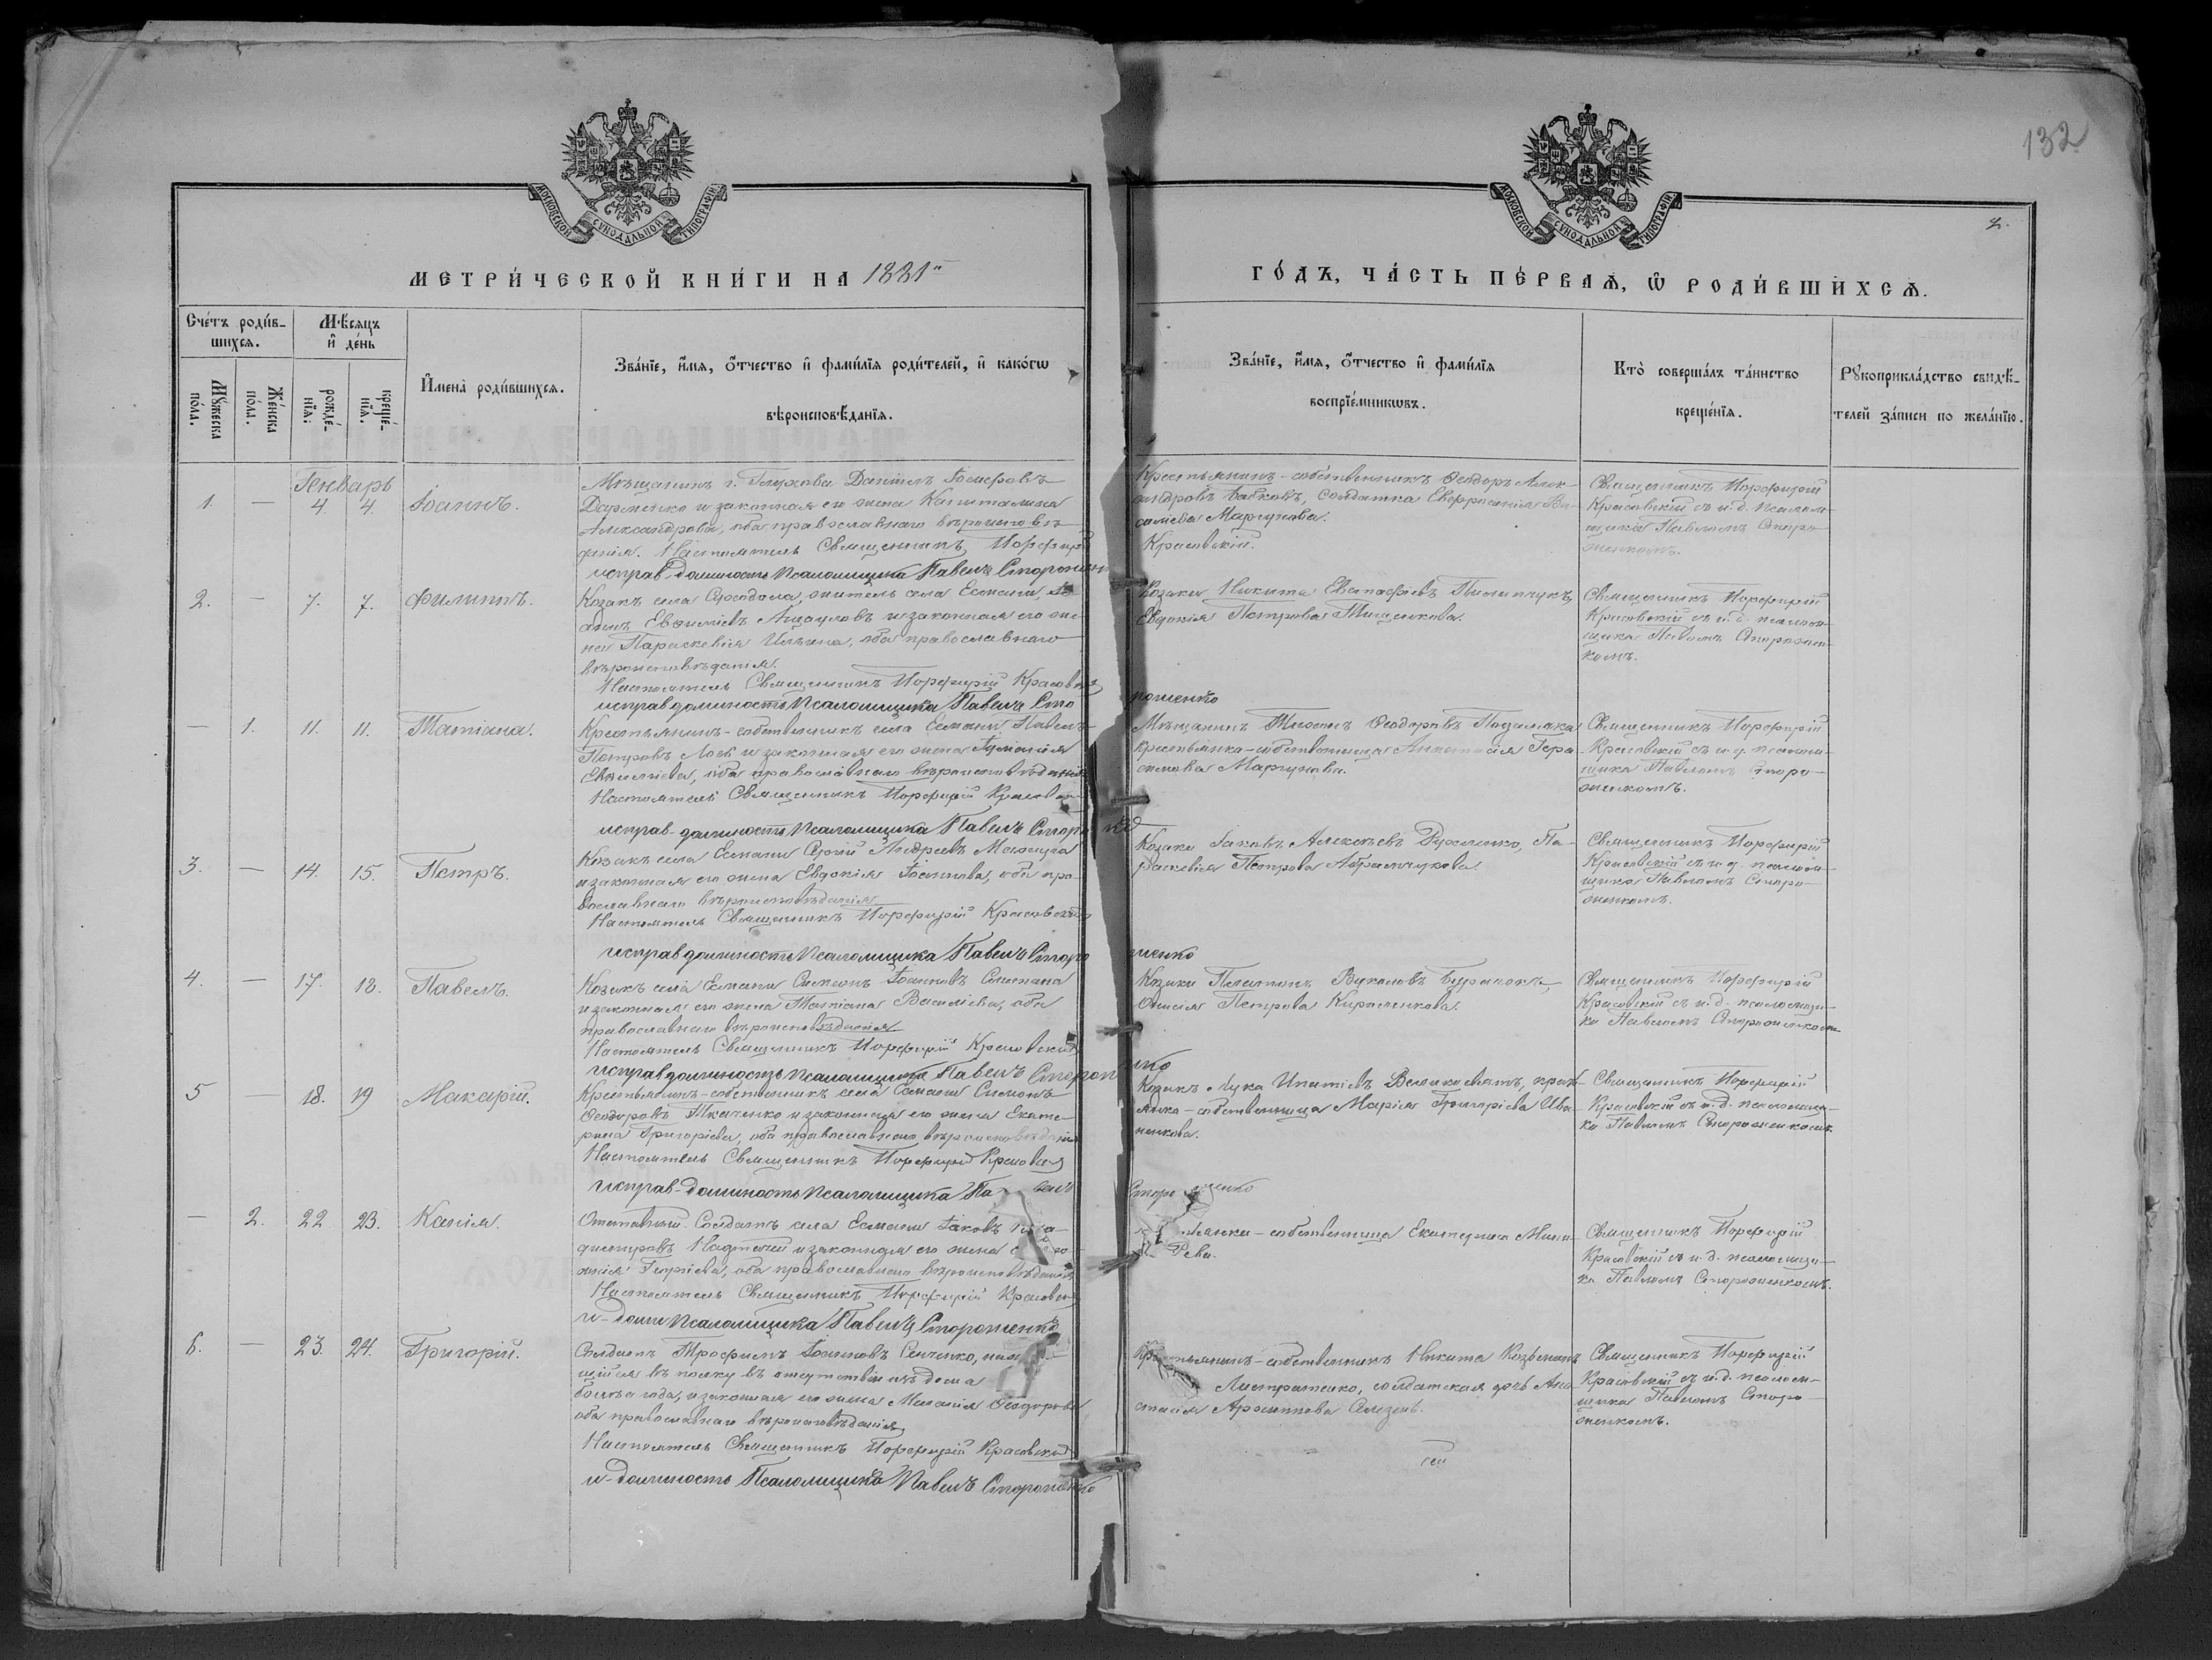 132
4.
МОСКОВСКОЙ СѴНОДАЛЬНОЙ ТИПОГРАФІИ
МОСКОВСКОЙ СѴНОДАЛЬНОЙ ТИПОГРАФІИ
МЕТРИ́ЧЕСКОЙ КНИ́ГИ НА 1881й
ГО́ДЪ, ЧА́СТЬ ПЕ́РВАѦ, Ѿ РОДИ́ВШИХСѦ.
Сче́тъ роди́в-
шихсѧ.
Мѣ́сѧцъ
и҆ де́нь
Мꙋ́жеска
по́ла.
Же́нска
по́ла.
рожде́-
нїѧ.
креще́-
нїѧ.
И҆мена̀ роди́вшихсѧ.
Зва́нїе, и҆́мѧ, ѻ҆́тчество и҆ фами́лїѧ роди́телей, и҆ како́гѡ
вѣроисповѣ́данїѧ.
Зва́нїе, и҆́мѧ, ѻ҆́тчество и҆ фами́лїѧ
воспрїе́мникѡвъ.
Кто̀ соверша́лъ та́инство
креще́нїѧ.
Рꙋкоприкла́дство свидѣ́-
телей за́писи по жела́нїю.
Генварь
1. — 4. 4. Іоаннъ.
Мѣщанинъ г. Глухова Даніилъ Іосифовъ
Дарменко и законная его жена Капиталина
Александрова, оба православнаго вѣроисповѣ-
данія. Настоятель Священникъ Порфирій
Красовскій.
исправ. должность Псаломщика Павелъ Стороженко
Крестьянинъ-собственникъ Ѳеодоръ Алек-
сандровъ Бабковъ, солдатка Евфросинія Ва-
силіева Маргунова.
Священникъ Порфирій
Красовскій съ и. д. псалом-
щика Павломъ Сторо-
женкомъ.
2. — 7. 7. Филиппъ.
Козакъ села житель села Есмани,
Евѳиміевъ и законная его же-
на Параскевія Ильина, оба православнаго
вѣроисповѣданія.
Настоятель Священникъ Порфирій Красовскій
исправ должность Псаломщика Павелъ Стороженко
Козаки Никита Евстафіевъ Пилипчукъ,
Евдокія Петрова Тищенкова.
Священникъ Порфирій
Красовскій съ и. д. псалом-
щика Павломъ Сторожен-
комъ.
— 1. 11. 11. Татіана.
Крестьянинъ-собственникъ села Есмани Павелъ
Петровъ Лось и законная его жена Іуліанія
Евѳиміева, оба православнаго вѣроисповѣданія
Настоятель Священникъ Порфирій Красовскій
исправ-должность Псаломщика Павелъ Стороженко
Мѣщанинъ Ѳеодоровъ
крестьянка-собственница Анастасія Гера-
симова Маргунова.
Священникъ Порфирій
Красовскій съ и. д. псалом-
щика Павломъ Сторо-
женкомъ.
3. — 14. 15. Петръ.
Козакъ села Есмани Сергій Андреевъ Маргула
и законная его жена Евдокія Іоаннова, оба пра-
вославнаго вѣроисповѣданія
Настоятель Священникъ Порфирій Красовскій
исправ должность Псаломщика Павелъ Стороженко
Козаки Іаковъ Алексѣевъ Руженко, Па-
раскевія Петрова Абрамчукова.
Священникъ Порфирій
Красовскій съ и. д. псалом-
щика Павломъ Сторо-
женкомъ.
4. — 17. 18. Павелъ.
Козакъ села Есмани Симеонъ Іоанновъ Сметана
и законная его жена Татіана Василіева, оба
православнаго вѣроисповѣданія
Настоятель Священникъ Порфирій Красовскій
исправ должность Псаломщика Павелъ Стороженко
Козаки Платонъ Вуколовъ
Петрова Кириленкова.
Священникъ Порфирій
Красовскій съ и. д. псаломщи-
ка Павломъ Стороженкомъ
5 — 18. 19 Макарій.
Крестьянинъ-собственникъ села Есмани Симеонъ
Ѳеодоровъ Ткаченко и законная его жена Екате-
рина Григоріева, оба православнаго вѣроисповѣданія
Настоятель Священникъ Порфирій Красовскій
исправ-должность Псаломщика Павелъ Стороженко
Козакъ Лука Ипатіевъ
янка-собственница Марія Григоріева Ива-
ненкова.
Священникъ Порфирій
Красовскій съ и. д. псаломщи-
ка Павломъ Стороженкомъ.
— 2. 22 23. Ксенія.
Отставной Солдатъ села Есмани Іаковъ
и законная его жена
Георгіева, оба православнаго вѣроисповѣданія
Настоятель Священникъ Порфирій Красовскій
и-долж Псаломщика Павелъ Стороженко
янка-собственница Екатерина
Рева.
Священникъ Порфирій
Красовскій съ и. д. псаломщи-
ка Павломъ Стороженкомъ.
6. — 23. 24. Григорій.
Солдатъ Трофимъ Іоанновъ Сенченко,
въ полку въ отсутствіи изъ дома
болѣе года, и законная его жена Меланія Ѳеодорова
оба православнаго вѣроисповѣданія
Настоятель Священникъ Порфирій Красовскій
и-должность Псаломщика Павелъ Стороженко
Крестьянинъ-собственникъ Никита Козьминъ
солдатская дочь Ана-
стасія
Священникъ Порфирій
Красовскій съ и. д. псалом-
щика Павломъ Сторо-
женкомъ.